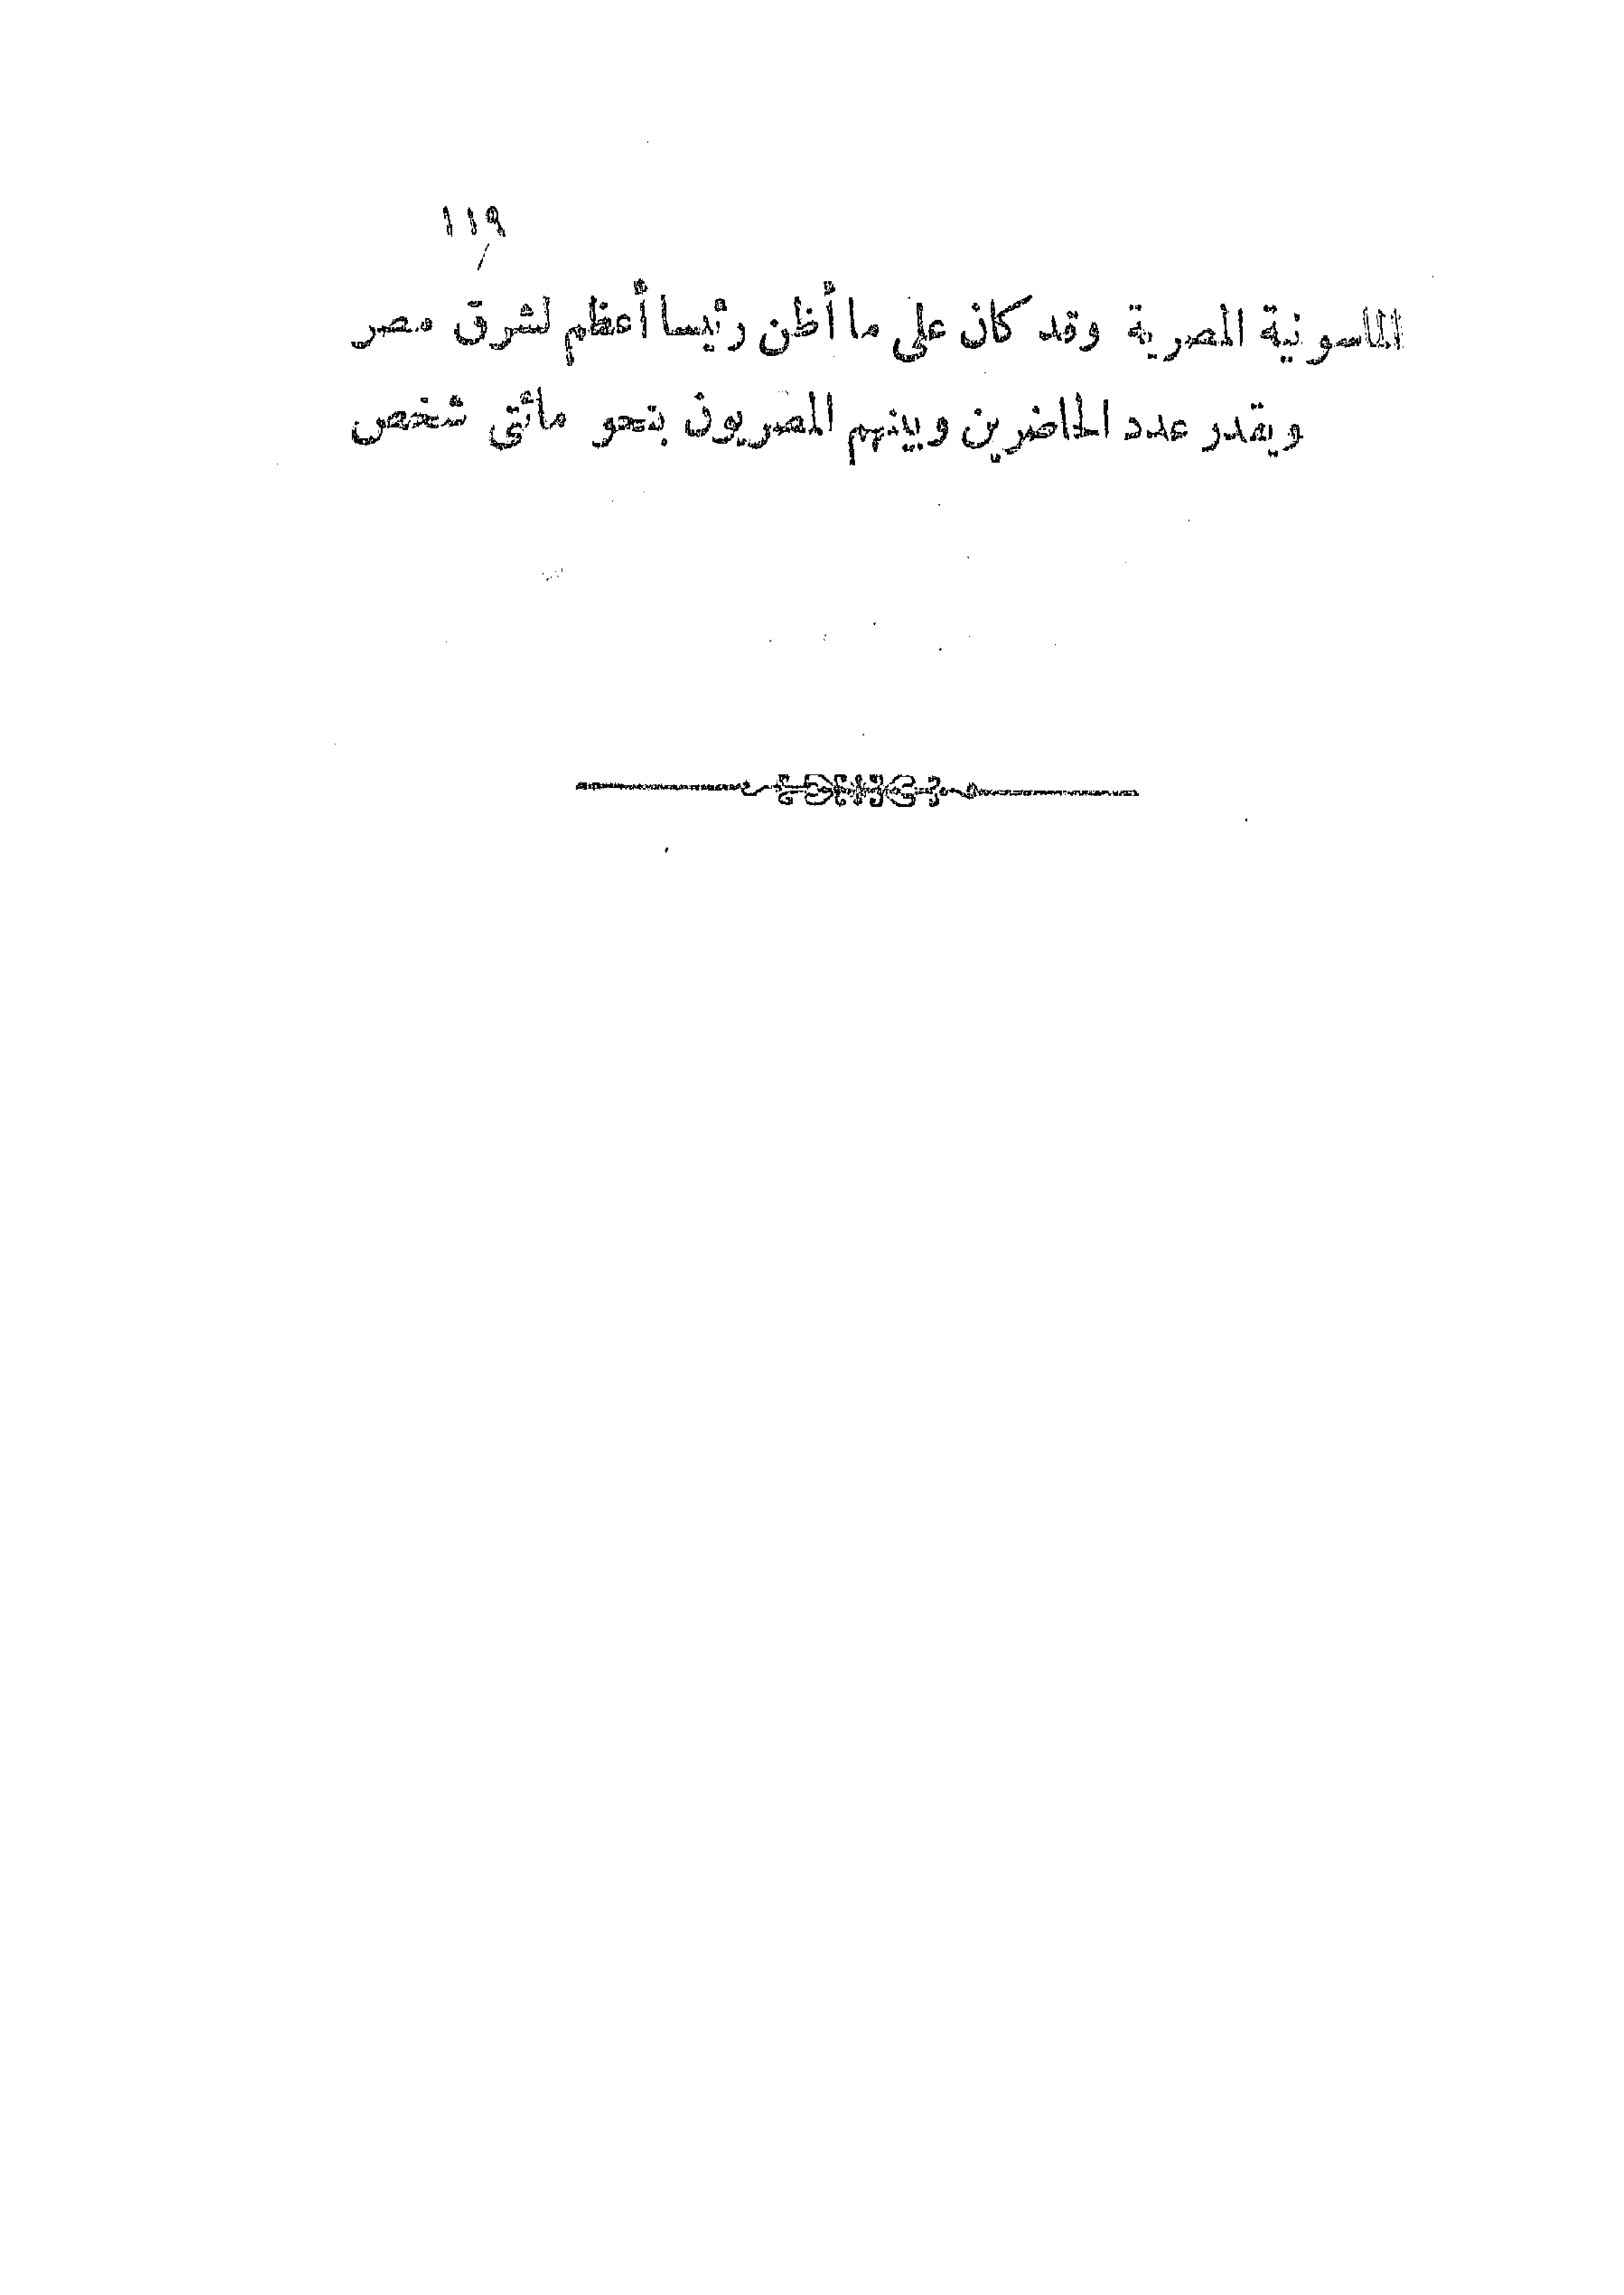 ١١٩
الماسونية المصرية وقد كان على ما أظن رئيسا أعظم لشرق مصر
ويقدر عدد الحاضرين وبينهم المصريون بنحو مائتى شخص